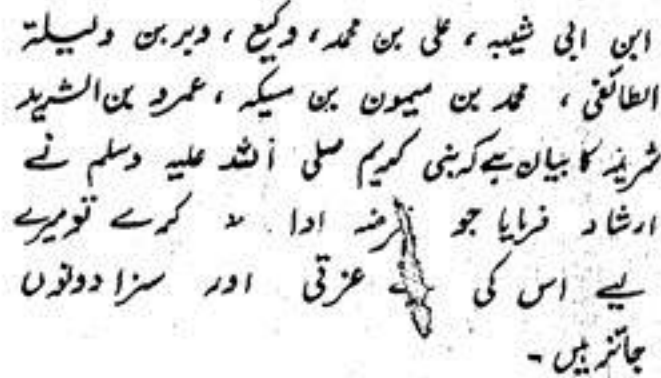 ابن ابی شیبہ ، علی بن محمد ، وکیع ، وبر بن دلیلۃ
الطائفی ، محمد بن میمون بن سیکہ ، عمرو بن الشرید
شرید کا بیان ہے کہ نبی کریم صلی اللہ علیہ وسلم نے
ارشاد فرمایا جو قرضہ ادا نہ کرے تو میرے
لیے اس کی بے عزتی اور سزا دونوں
جائز ہیں ۔